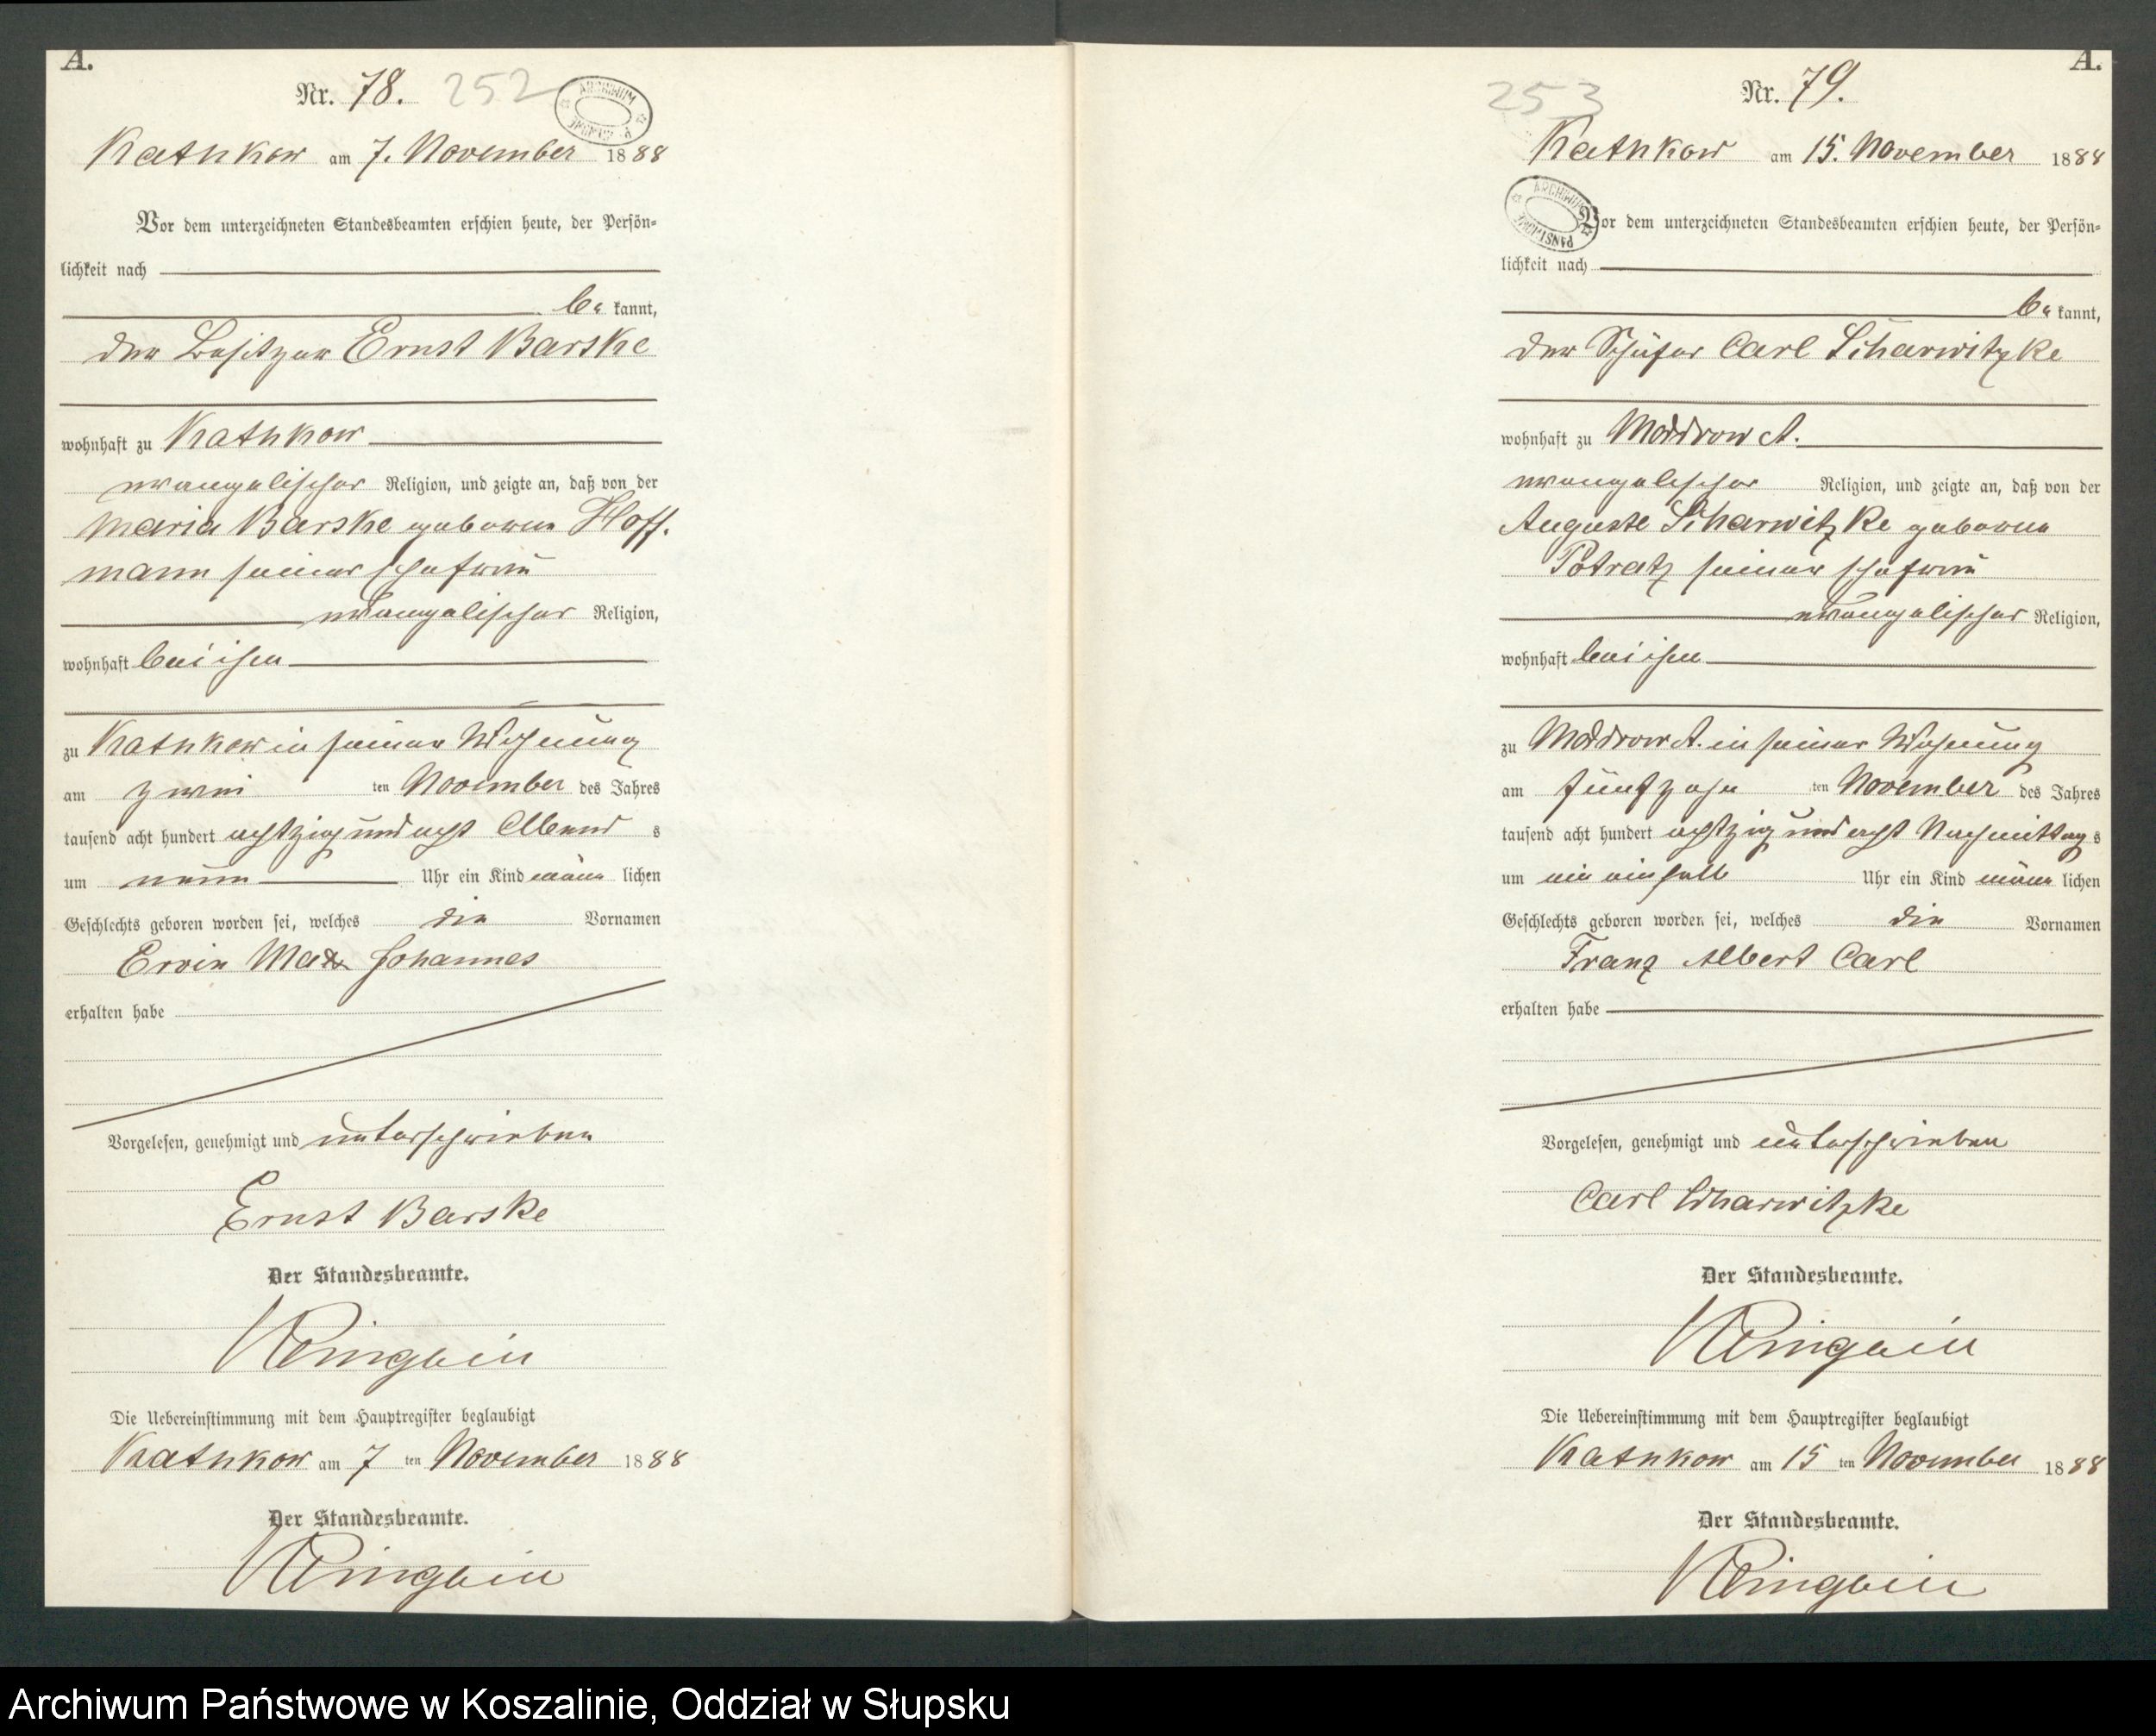 A.
Nr. 78. 252
ARCHIWUM
Kathkow am 7. November 1888
Vor dem unterzeichneten Standesbeamten erschien heute, der Persön-
lichkeit nach
be kannt,
der Besitzer Ernst Barske
wohnhaft zu Kathkow
evangelischer Religion, und zeigte an, daß von der
Maria Barske geborene Hoff-
mann seiner Ehefrau
evangelischer Religion,
wohnhaft bei ihm
zu Kathkow in seiner Wohnung
am zwei ten November des Jahres
tausend acht hundert achtzig und acht Abend s
um neun Uhr ein Kind männ lichen
Geschlechts geboren worden sei, welches die Vornamen
Ervin Max Johannes
erhalten habe
Vorgelesen, genehmigt und unterschrieben
Ernst Barske
Der Standesbeamte.
Die Uebereinstimmung mit dem Hauptregister beglaubigt
Kathkow am 7 ten November 1888
Der Standesbeamte.
A.
253 Nr. 79.
Kathkow am 15. November 1888
ARCHIWUM
Vor dem unterzeichneten Standesbeamten erschien heute, der Persön-
lichkeit nach
be kannt,
der Schäfer Carl Scharwitzke
wohnhaft zu Moddrow A.
evangelischer Religion, und zeigte an, daß von der
Auguste Scharwitzke geborene
Potratz seiner Ehefrau
evangelischer Religion,
wohnhaft bei ihm
zu Moddrow A. in seiner Wohnung
am fünfzehn ten November des Jahres
tausend acht hundert achtzig und acht Nachmittag s
um ein einhalb Uhr ein Kind männ lichen
Geschlechts geboren worden sei, welches die Vornamen
Franz Albert Carl
erhalten habe
Vorgelesen, genehmigt und unterschrieben
Carl Scharwitzke
Der Standesbeamte.
Die Uebereinstimmung mit dem Hauptregister beglaubigt
Kathkow am 15 ten November 1888
Der Standesbeamte.
Archiwum Państwowe w Koszalinie, Oddział w Słupsku